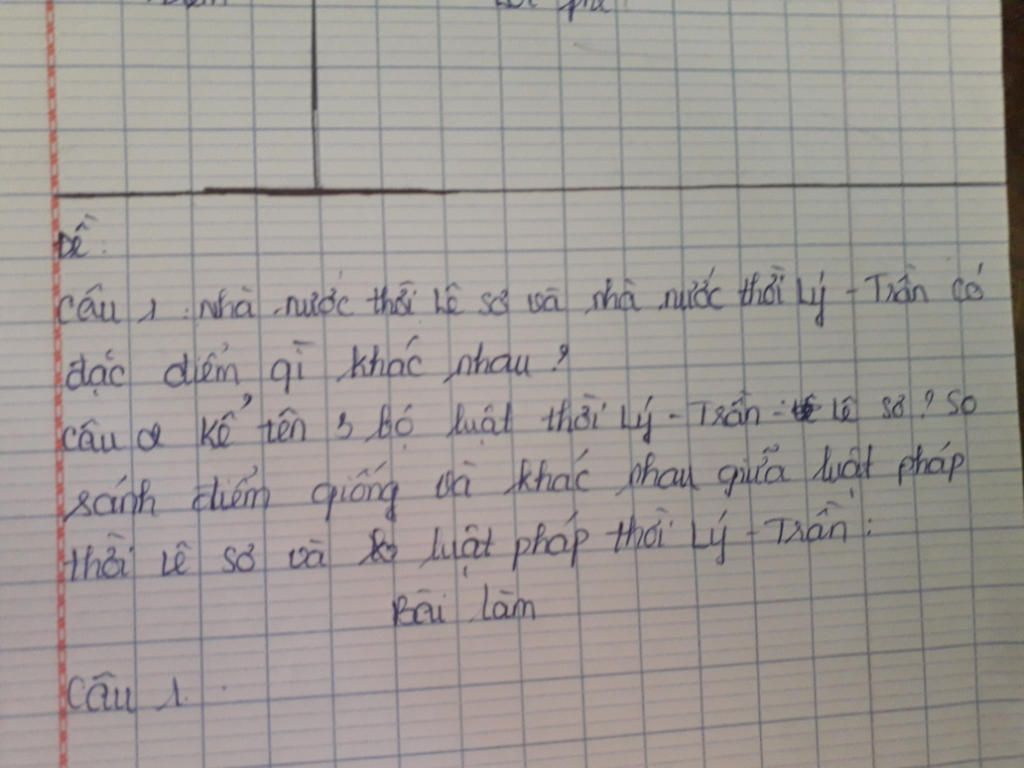 Đề:
Câu 1: Nhà nước thời Lê sơ và nhà nước thời Lý - Trần có
đặc điểm gì khác nhau?
Câu 2 Kể tên 3 bộ luật thời Lý - Trần - Lê sơ? So
sánh điểm giống và khác nhau giữa luật pháp
thời Lê sơ và luật pháp thời Lý - Trần:
Bài làm
Câu 1.